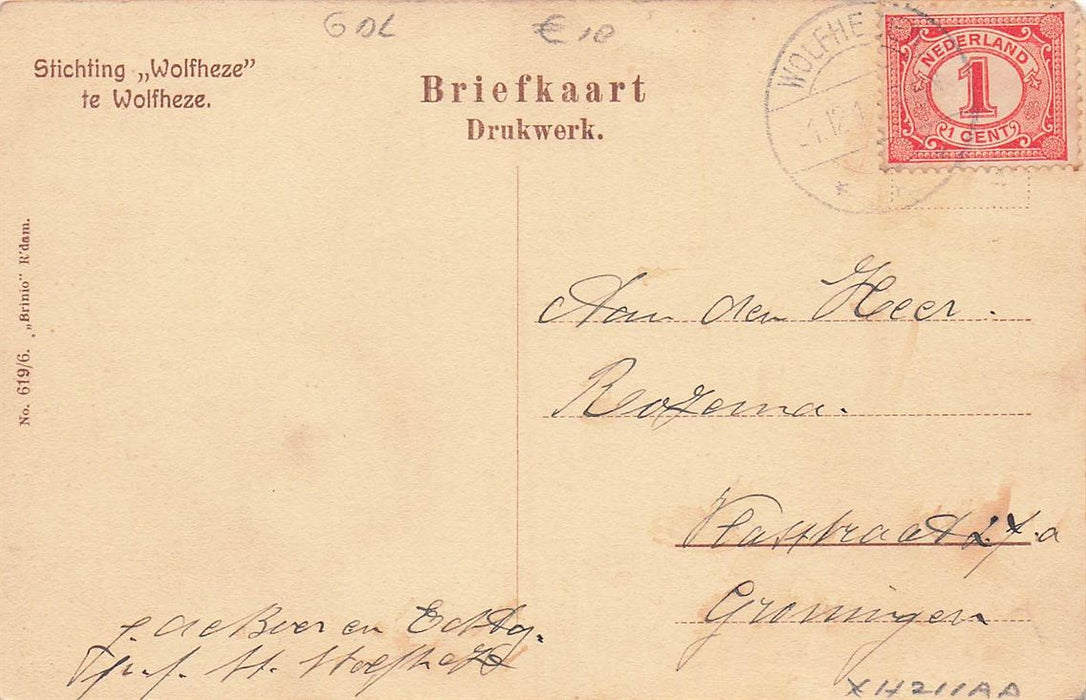 G DL € 10
Stichting „Wolfheze”
te Wolfheze.
Briefkaart
Drukwerk.
WOLFHE
NEDERLAND
1
1 CENT
No. 619/6. „Brinio” R'dam.
Aan den Heer.
Rozema.
Vlasstraat 27.a
Groningen
J. de Boer en Echtg.
St. Wolfheze
XH211AA